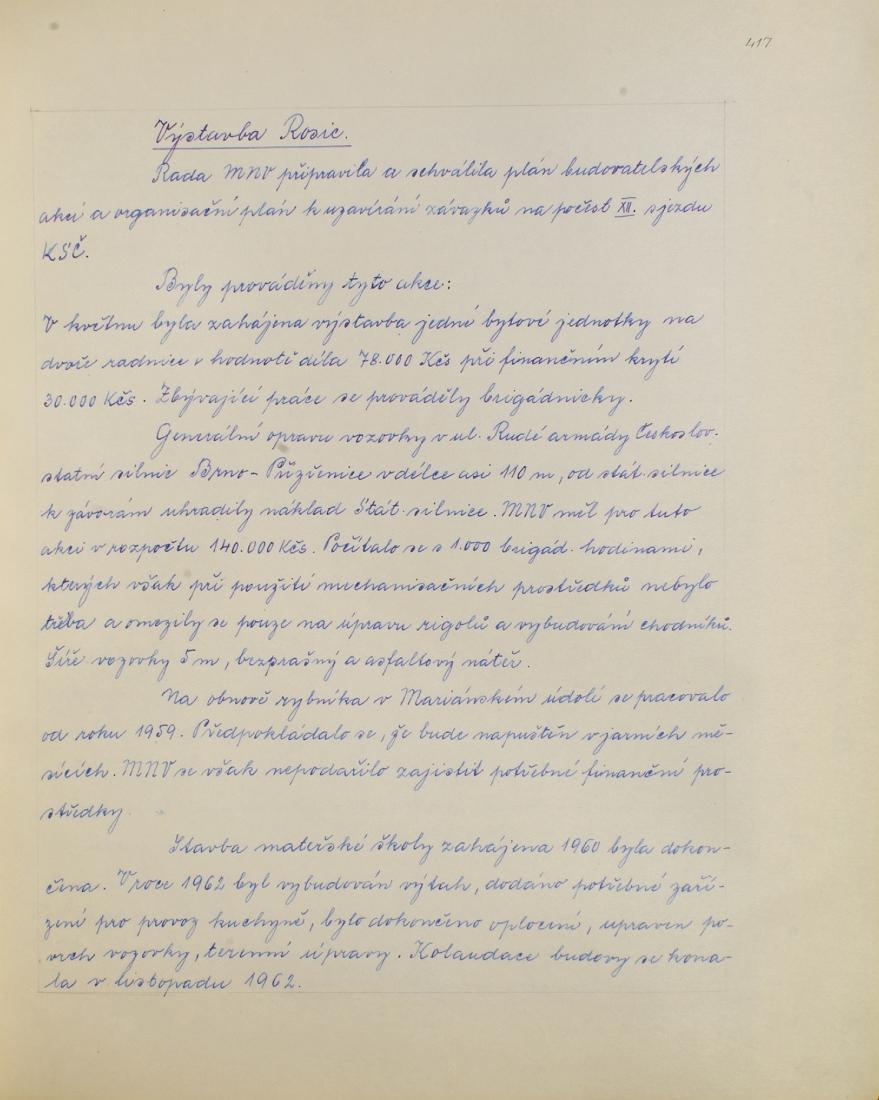 417
Výstavba Rosic.
Rada MNV připravila a schválila plán budovatelských
akcí a organisační plán k uzavírání závazků na počest XII. sjezdu
KSČ.
Byly prováděny tyto akce:
V květnu byla zahájena výstavba jedné bytové jednotky na
dvoře radnice v hodnotě díla 78.000 Kčs při finančním krytí
30.000 Kčs. Zbývající práce se prováděly brigádnicky.
Generální opravu vozovky v ul. Rudé armády Českoslov.
státní silnic Brno - v délce asi 110 m, od stát. silnice
k závorám uhradily náklad Stát. silnice. MNV měl pro tuto
akci v rozpočtu 140.000 Kčs. Počítalo se s 1.000 brigád. hodinami,
kterých však při použití mechanisačních prostředků nebylo
třeba a omezily se pouze na úpravu rigolů a vybudování chodníků.
Šíře vozovky 5 m, bezprašný a asfaltový nátěr.
Na obnově rybníka v Mariánském údolí se pracovalo
od roku 1959. Předpokládalo se, že bude napuštěn v jarních mě-
sících. MNV se však nepodařilo zajistit potřebné finanční pro-
středky.
Stavba mateřské školy zahájena 1960 byla dokon-
čena. V roce 1962 byl vybudován výtah, dodáno potřebné zaří-
zení pro provoz kuchyně, bylo dokončeno oplocení, upraven po-
vrch vozovky, terenní úpravy. Kolaudace budovy se kona-
la v listopadu 1962.